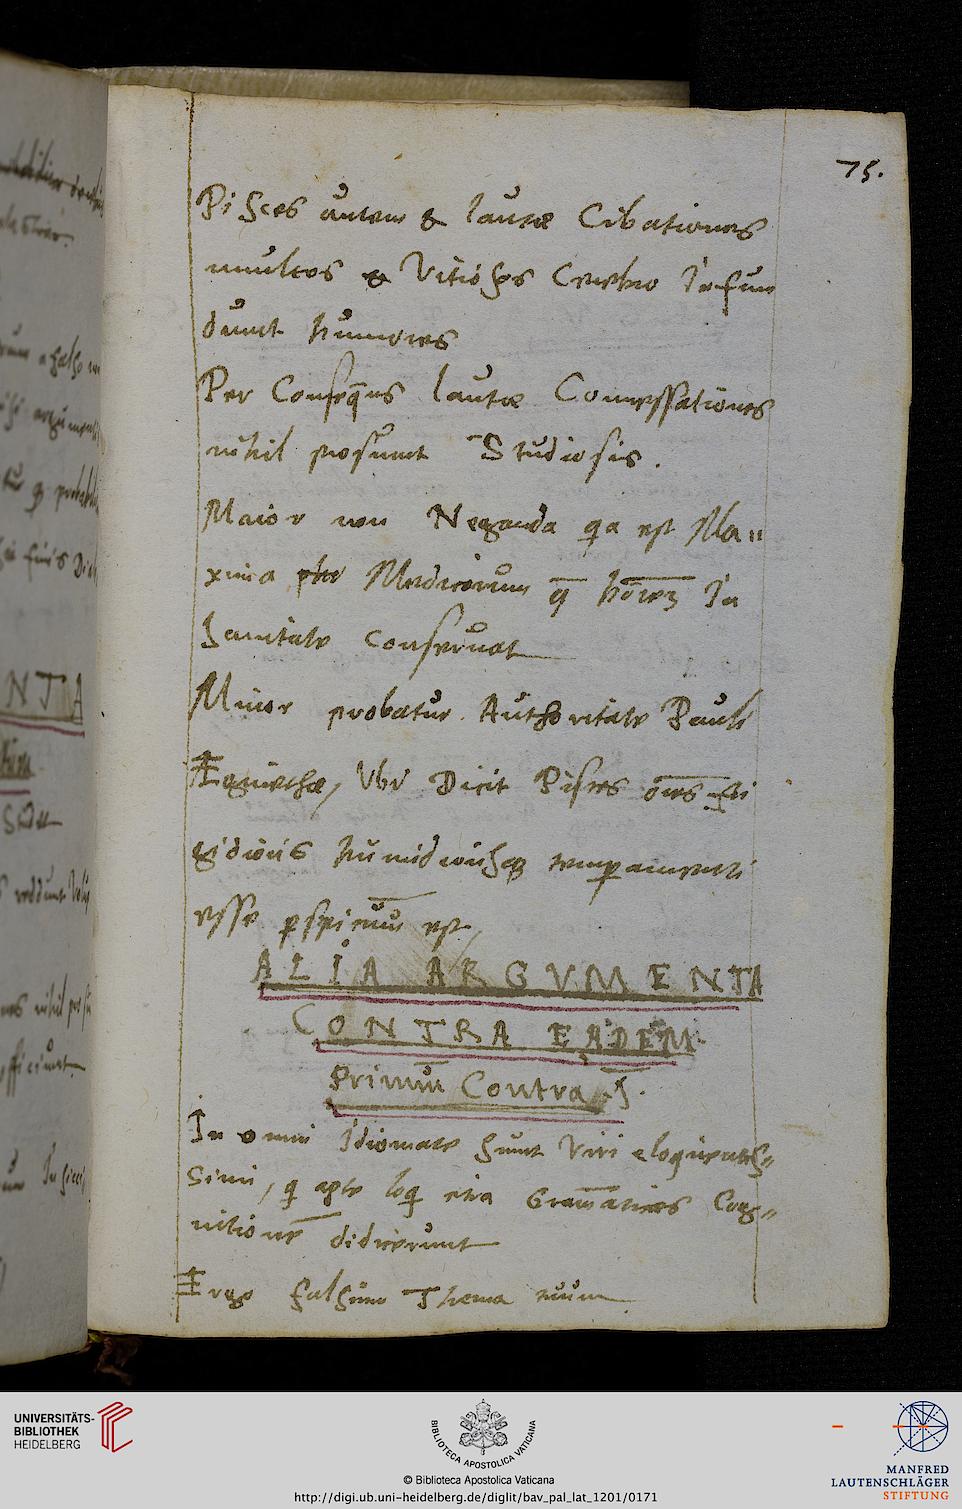 75.
Pisces autem & lautæ Cibationes
multos & Vitiosos Cerebro Infun
dunt humores
Per Conseq̄ns lautæ Comessationes
nihil prosunt Studiosis.
Maior non Neganda qa est Ma„
xima Medicorum q̄ hōiem In
sanitate conseruat
Minor probatur Authoritate Pauli
Æginethæ, Vbi Dicit Pisces ōes fri
gidioris humidiorisq₃ temperamenti
esse pspicuū est
ALIA ARGVMENTA
CONTRA EADEM.
Primum Contra .I.
In omni Idiomate sunt Viri eloquentis„
simi, q apte loq etia Gramatices Cog„
nitione didicerunt
Ergo falsum Thema tuum
UNIVERSITÄTS-
BIBLIOTHEK
HEIDELBERG
BIBLIOTECA APOSTOLICA VATICANA
© Biblioteca Apostolica Vaticana
http://digi.ub.uni-heidelberg.de/diglit/bav_pal_lat_1201/0171
MANFRED
LAUTENSCHLÄGER
STIFTUNG